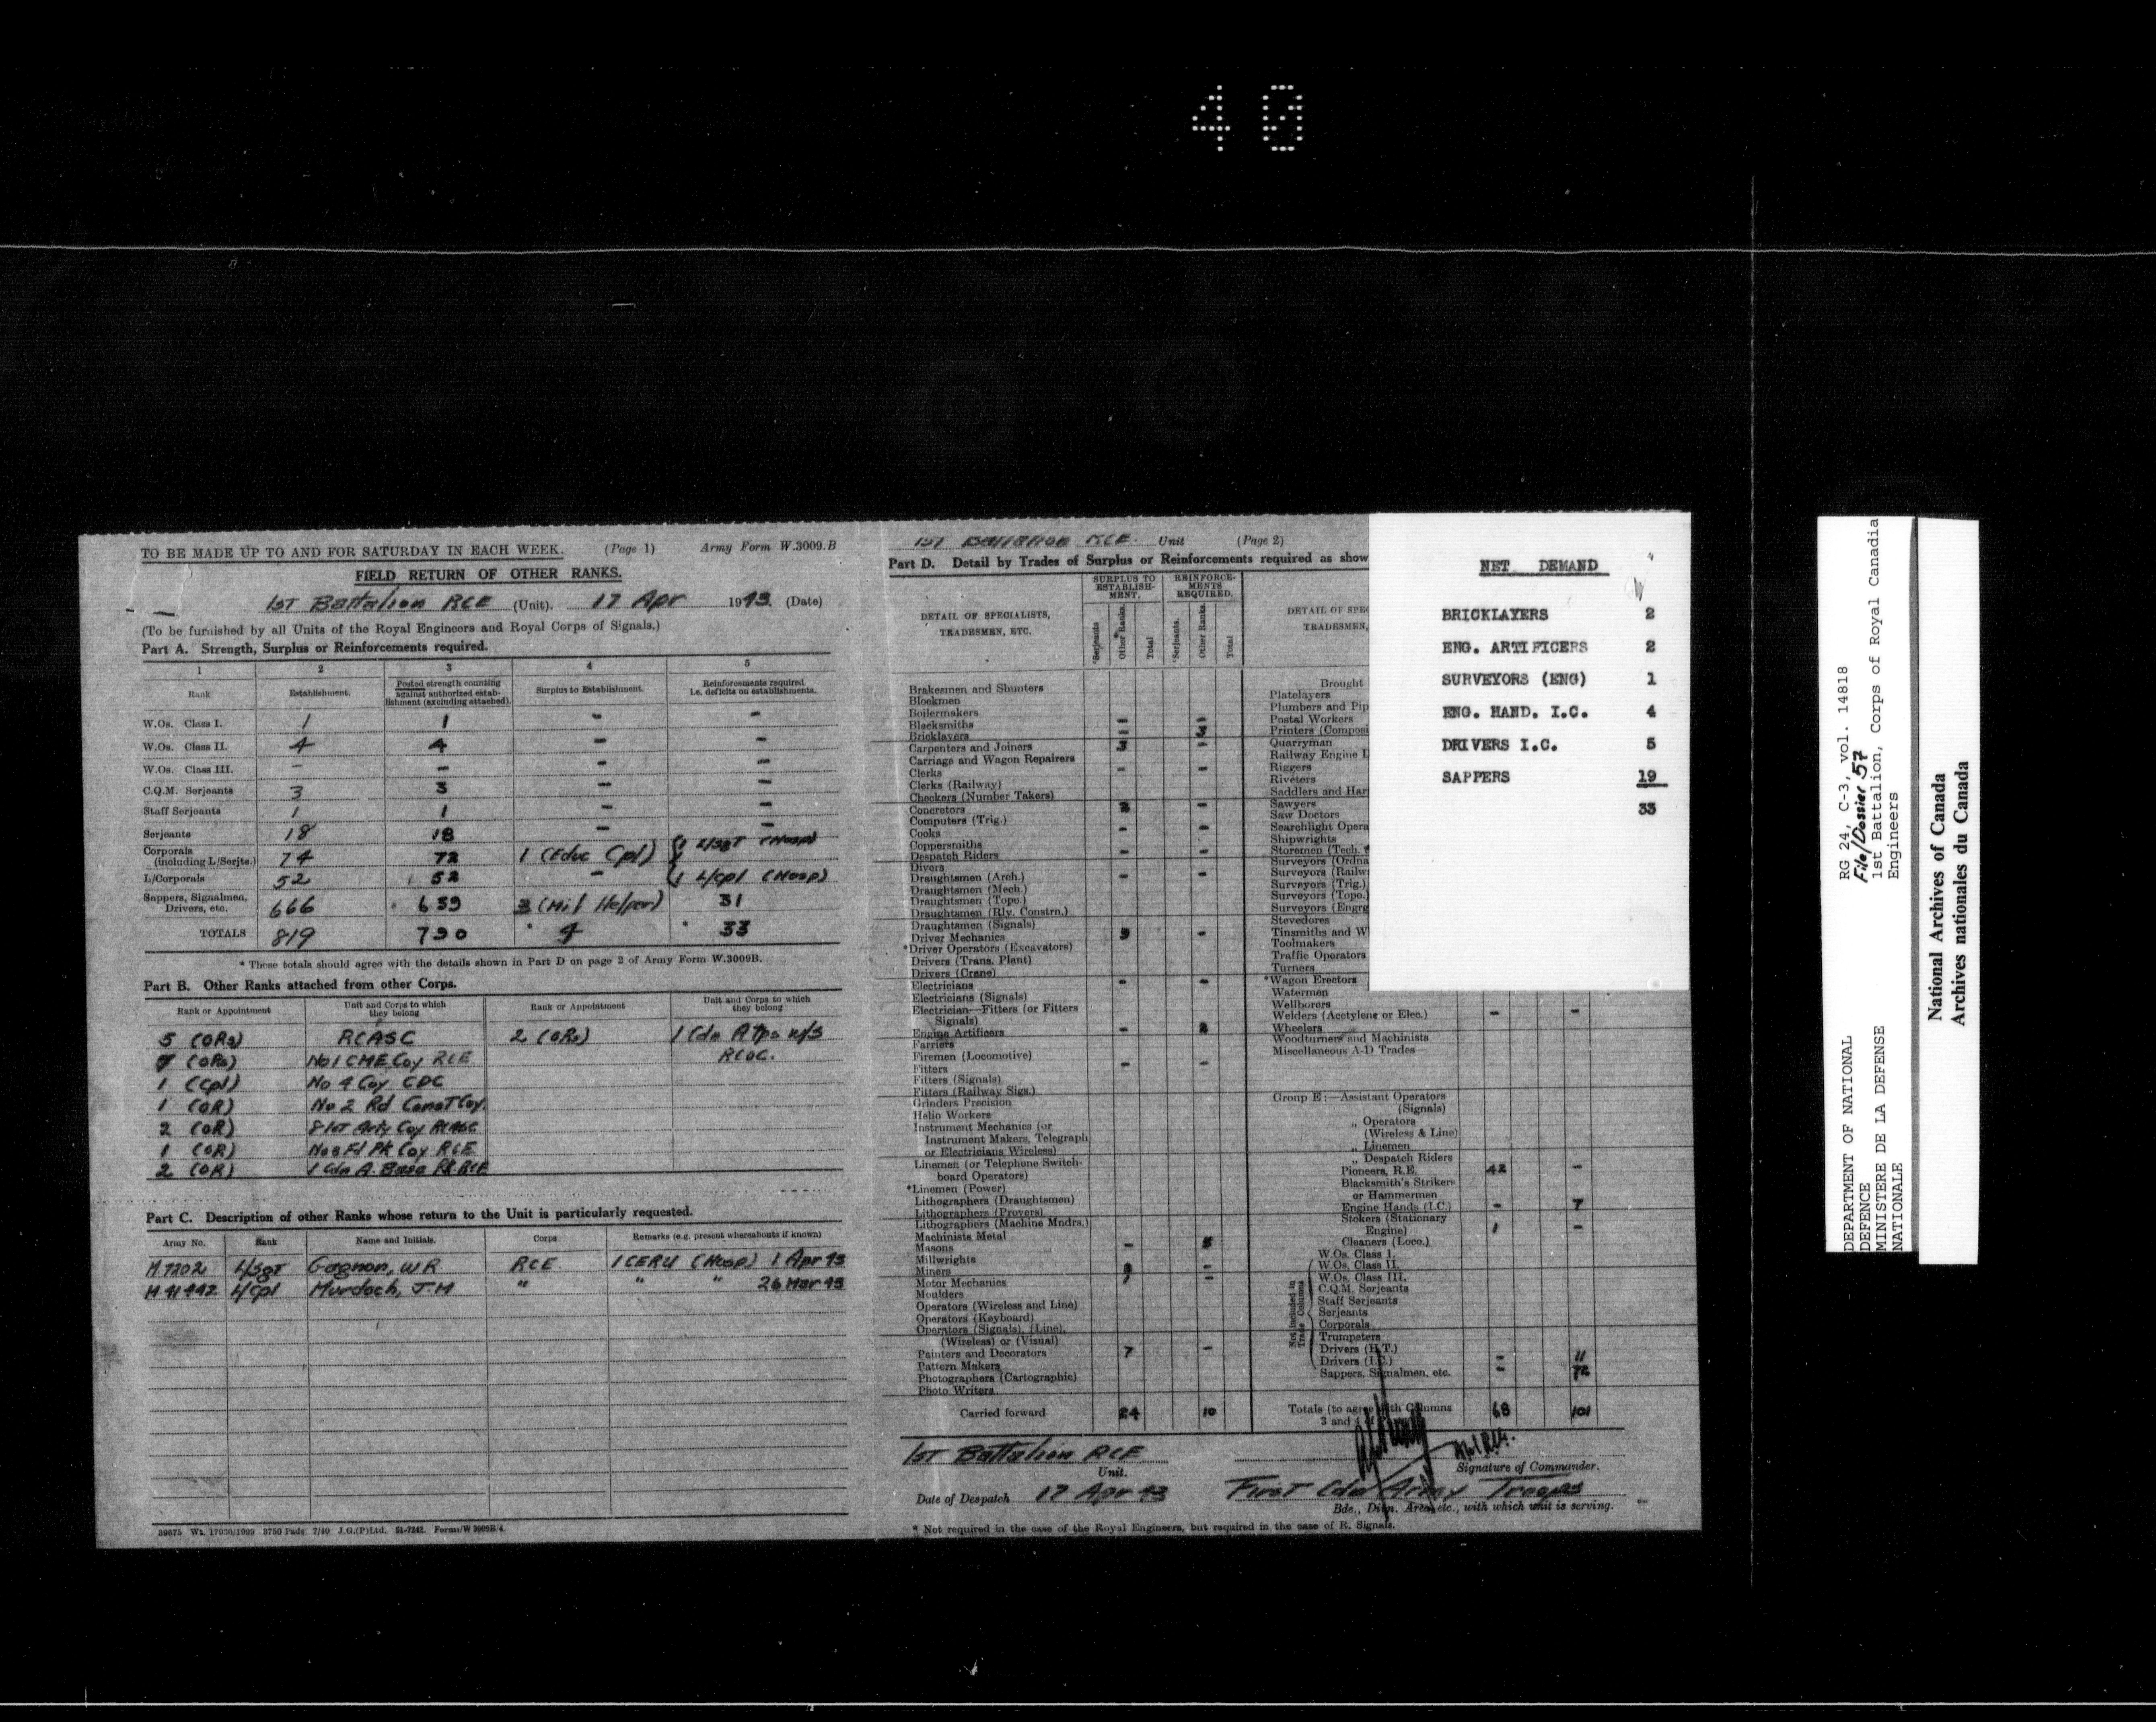 40
TO BE MADE UP TO AND FOR SATURDAY IN EACH WEEK. (Page 1) Army Form W.3009.B
FIELD RETURN OF OTHER RANKS.
1ST Battalion RCE (Unit). 17 Apr 1943. (Date)
(To be furnished by all Units of the Royal Engineers and Royal Corps of Signals.)
Part A. Strength, Surplus or Reinforcements required.
1 2 3 4 5
Rank Establishment. Posted strength counting against authorized establishment (excluding attached). Surplus to Establishment. Reinforcements required i.e. deficits on establishments.
W.Os. Class I. 1 1 - -
W.Os. Class II. 4 4 - -
W.Os. Class III. - - - -
C.Q.M. Serjeants 3 3 - -
Staff Serjeants 1 1 - -
Serjeants 18 18 - -
Corporals (including L/Serjts.) 74 72 1 (Educ Cpl) 1 L/Sgt (Hosp)
L/Corporals 52 52 - 1 L/Cpl (Hosp)
Sappers, Signalmen, Drivers, etc. 666 639 3 (Mil Helper) 31
TOTALS 819 790 4 33
* These totals should agree with the details shown in Part D on page 2 of Army Form W.3009B.
Part B. Other Ranks attached from other Corps.
Rank or Appointment Unit and Corps to which they belong Rank or Appointment Unit and Corps to which they belong
5 (ORs) RCASC 2 (ORs) 1 Cdn A Tps w/s
(ORs) No 1 CME Coy RCE RCOC.
1 (Cpl) No 4 Coy CDC
1 (OR) No 2 Rd Const Coy.
2 (OR) 81st Arty Coy RCASC
1 (OR) No 8 Fd Pk Coy RCE
2 (OR) 1 Cdn A. Base Pk RCE
Part C. Description of other Ranks whose return to the Unit is particularly requested.
Army No. Rank Name and Initials. Corps Remarks (e.g. present whereabouts if known)
H.7202 L/Sgt Gagnon, W R RCE 1 CERU (Hosp) 1 Apr 43
H 41442 L/Cpl Murdoch, J.M " " " 26 Mar 43
39675 Wt. 17930/1909 3750 Pads 7/40 J.G.(P)Ltd. 51-7242. Forms/W 3009B/4.
1ST Battalion RCE. Unit (Page 2)
Part D. Detail by Trades of Surplus or Reinforcements required as show
DETAIL OF SPECIALISTS, TRADESMEN, ETC.
SURPLUS TO ESTABLISHMENT. REINFORCEMENTS REQUIRED.
*Serjeants Other Ranks. Total *Serjeants. Other Ranks. Total
Brakesmen and Shunters
Blockmen
Boilermakers
Blacksmiths - -
Bricklayers - 3
Carpenters and Joiners 3 -
Carriage and Wagon Repairers
Clerks - -
Clerks (Railway)
Checkers (Number Takers)
Concretors 2 -
Computers (Trig.)
Cooks - -
Coppersmiths
Despatch Riders - -
Divers
Draughtsmen (Arch.) - -
Draughtsmen (Mech.)
Draughtsmen (Topo.)
Draughtsmen (Rly. Constrn.)
Draughtsmen (Signals)
Driver Mechanics 9 -
*Driver Operators (Excavators)
Drivers (Trans. Plant)
Drivers (Crane)
Electricians - -
Electricians (Signals)
Electrician—Fitters (or Fitters Signals)
Engine Artificers - 2
Farriers
Firemen (Locomotive)
Fitters - -
Fitters (Signals)
Fitters (Railway Sigs.)
Grinders Precision
Helio Workers
Instrument Mechanics (or
Instrument Makers, Telegraph
or Electricians Wireless)
Linemen (or Telephone Switch-
board Operators)
*Linemen (Power)
Lithographers (Draughtsmen)
Lithographers (Provers)
Lithographers (Machine Mndrs.)
Machinists Metal
Masons - 5
Millwrights
Miners 3 -
Motor Mechanics 1 -
Moulders
Operators (Wireless and Line)
Operators (Keyboard)
Operators (Signals), (Line),
(Wireless) or (Visual)
Painters and Decorators 7 -
Pattern Makers
Photographers (Cartographic)
Photo Writers
Carried forward 24 10
DETAIL OF SPEC
TRADESMEN,
Brought
Platelayers
Plumbers and Pip
Postal Workers
Printers (Composi
Quarryman
Railway Engine
Riggers
Riveters
Saddlers and Har
Sawyers
Saw Doctors
Searchlight Opera
Shipwrights
Storemen (Tech.
Surveyors (Ordna
Surveyors (Railw
Surveyors (Trig.)
Surveyors (Topo.)
Surveyors (Engrg
Stevedores
Tinsmiths and W
Toolmakers
Traffic Operators
Turners
*Wagon Erectors
Watermen
Wellborers
Welders (Acetylene or Elec.) - -
Wheelers
Woodturners and Machinists
Miscellaneous A-D Trades—
Group E:—Assistant Operators (Signals)
" Operators (Wireless & Line)
" Linemen
" Despatch Riders
Pioneers, R.E. 42 -
Blacksmith's Strikers or Hammermen
Engine Hands (I.C.) - 7
Stokers (Stationary Engine) 1 -
Cleaners (Loco.)
Not included in Trade Columns
W.Os. Class I.
W.Os. Class II.
W.Os. Class III.
C.Q.M. Serjeants
Staff Serjeants
Serjeants
Corporals
Trumpeters
Drivers (H.T.)
Drivers (I.C.) - 11
Sappers, Signalmen, etc. - 72
Totals (to agree with Columns 3 and 4 of 68 101
1ST Battalion RCE
Unit.
Signature of Commander.
Date of Despatch 17 Apr 43 First Cdn Army Troops
Bde., Divn. Area, etc., with which unit is serving.
* Not required in the case of the Royal Engineers, but required in the case of R. Signals.
NET DEMAND
BRICKLAYERS 2
ENG. ARTIFICERS 2
SURVEYORS (ENG) 1
ENG. HAND. I.C. 4
DRIVERS I.C. 5
SAPPERS 19
33
DEPARTMENT OF NATIONAL
DEFENCE
MINISTERE DE LA DEFENSE
NATIONALE
RG 24, C-3, vol. 14818
File/Dossier 57
1st Battalion, Corps of Royal Canadia
Engineers
National Archives of Canada
Archives nationales du Canada